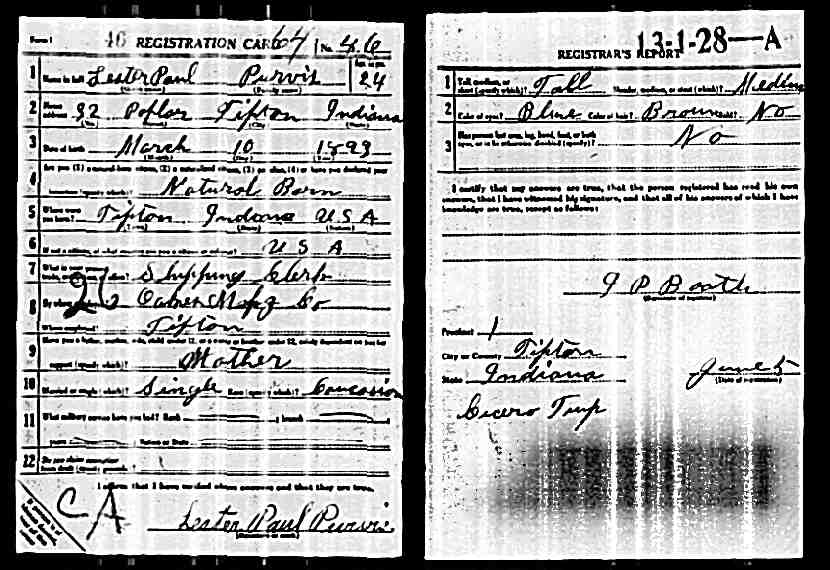 Form 1 46 REGISTRATION CARD 64 No. 46
1 Name in full Lester Paul Purvis Age, in yrs. 24
(Given name) (Family name)
2 Home address 32 Poplar Tipton Indiana
(No.) (City) (State)
3 Date of birth March 10 1893
(Month) (Day) (Year)
4 Are you (1) a natural-born citizen, (2) a naturalized citizen, (3) an alien, (4) or have you declared your
intention (specify which)? Natural Born
5 Where were you born? Tipton Indiana USA
(Town) (State) (Nation)
6 If not a citizen, of what country are you a citizen or subject? USA
7 What is your present trade, occupation, or office? Shipping Clerk
26
8 By whom employed? Mfg Co
Where employed? Tipton
9 Have you a father, mother, wife, child under 12, or a sister or brother under 12, solely dependent on you for
support (specify which)? Mother
10 Married or single (which)? Single Race (specify which)? Caucasian
11 What military service have you had? Rank ; branch
years ; Nation or State
12 Do you claim exemption from draft (specify grounds)?
I affirm that I have verified above answers and that they are true.
CA
Lester Paul Purvis
(Signature or mark)
13-1-28-A
REGISTRAR'S REPORT
1 Tall, medium, or short (specify which)? Tall Slender, medium, or stout (which)? Medium
2 Color of eyes? Blue Color of hair? Brown Bald? No
3 Has person lost arm, leg, hand, foot, or both eyes, or is he otherwise disabled (specify)? No
I certify that my answers are true, that the person registered has read his own
answers, that I have witnessed his signature, and that all of his answers of which I have
knowledge are true, except as follows:
J P Booth
(Signature of registrar)
Precinct 1
City or County Tipton
State Indiana June 5
(Date of registration)
Cicero Twp